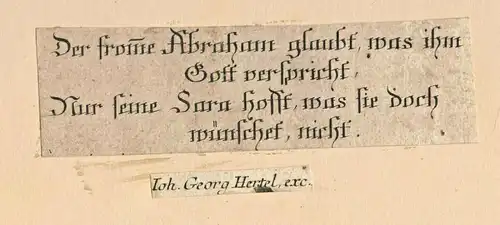 Der from̃e Abraham glaubt, was ihm
Gott verspricht,
Nur seine Sara hofft, was sie doch
wünschet, nicht.
Ioh. Georg Hertel, exc.